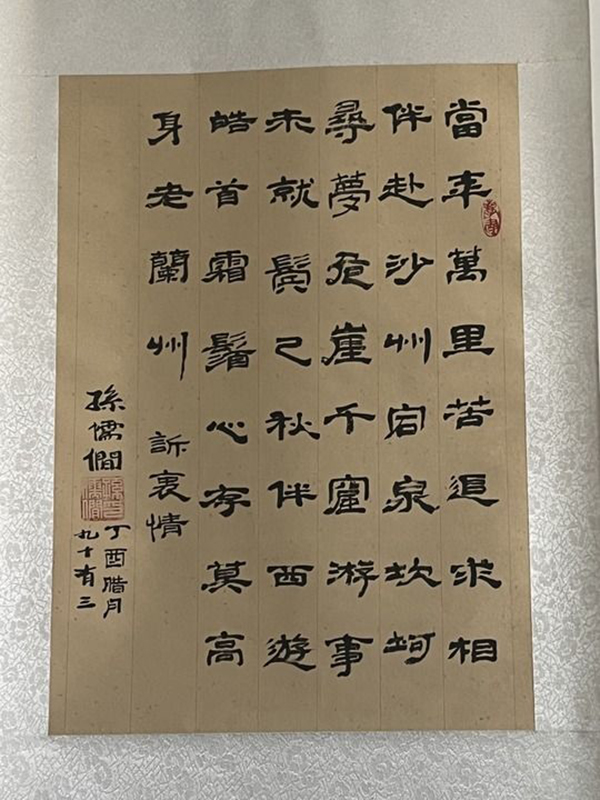 當年萬里苦追求相
伴赴沙州宕泉坎坷
尋夢危崖千窟游事
未就鬓已秋伴西遊
皓首霜心存莫高
身老蘭州 訴衷情
孫儒僩
丁酉腊月
九十有三